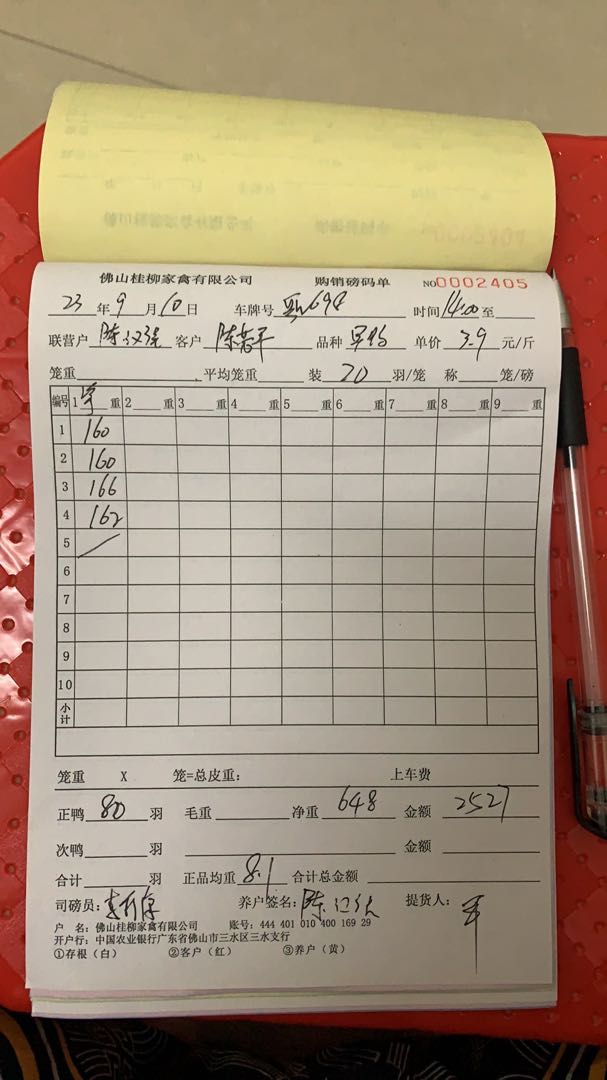 佛山桂柳家禽有限公司 购销磅码单 NO0002405
23年9月10日 车牌号 698 时间14:00至
联营户 陈 客户 陈 平 品种 单价 3.9 元/斤
笼重 平均笼重 装 20 羽/笼 称 笼/磅
编号 1 重 2 重 3 重 4 重 5 重 6 重 7 重 8 重 9 重
1 160
2 160
3 166
4 162
5
6
7
8
9
10
小计
笼重 X 笼=总皮重： 上车费
正鸭 80 羽 毛重 净重 648 金额 2527
次鸭 羽 金额
合计 羽 正品均重 8.1 合计总金额
司磅员： 养户签名：陈 提货人：
户 名：佛山桂柳家禽有限公司 账号：444 401 010 400 169 29
开户行：中国农业银行广东省佛山市三水区三水支行
①存根（白） ②客户（红） ③养户（黄）